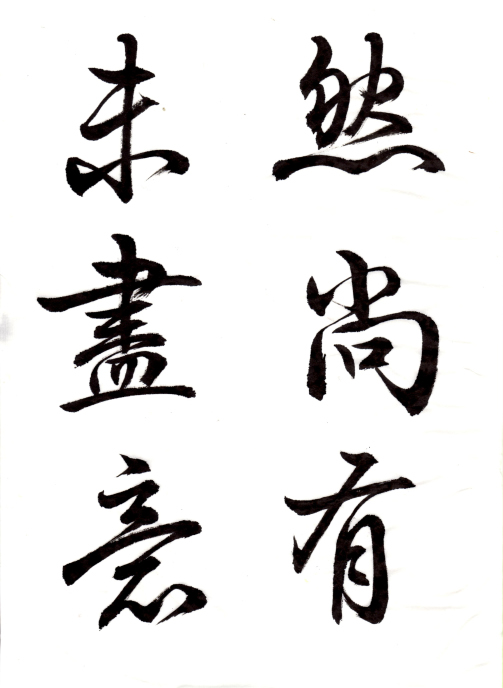 然尚有
未盡意